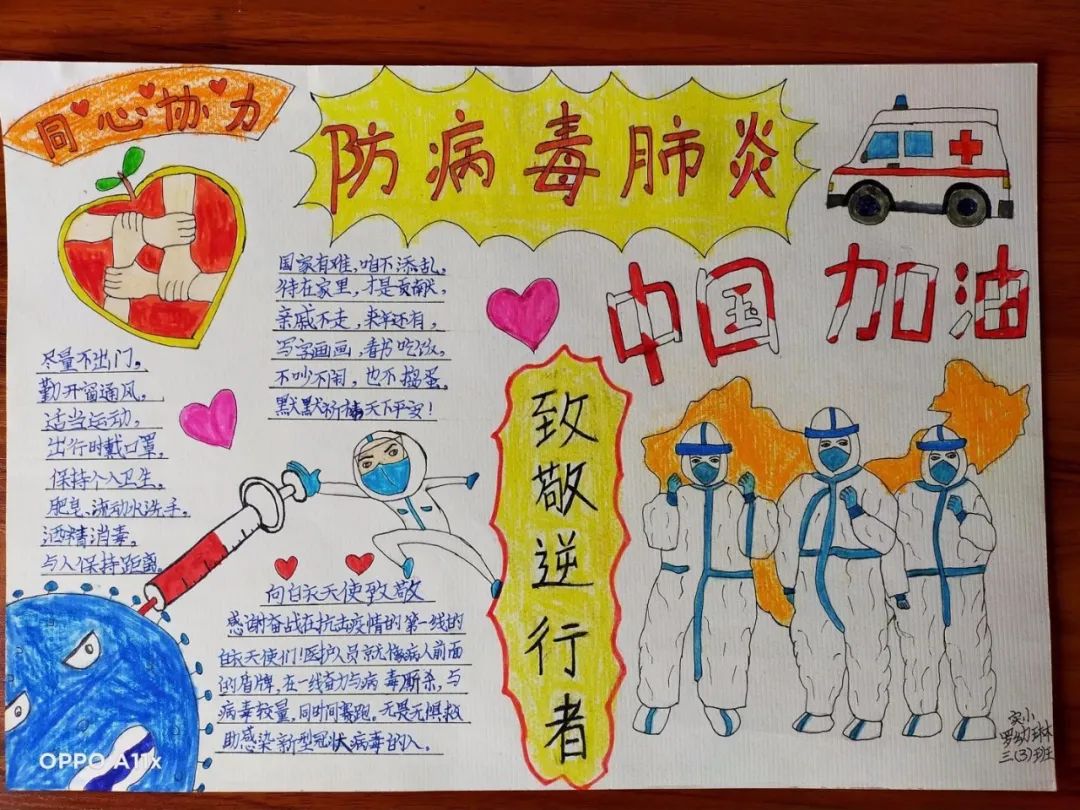 同心协力
防病毒肺炎
中国 加油
国家有难，咱不添乱。
待在家里，才是贡献，
亲戚不走，来年还有，
写字画画，看书吃饭，
不吵不闹，也不捣蛋，
默默祈祷天下平安！
尽量不出门。
勤开窗通风，
适当运动，
出行时戴口罩，
保持个人卫生，
肥皂、流动水洗手。
酒精消毒，
与人保持距离。
致敬逆行者
向白衣天使致敬
感谢奋战在抗击疫情的第一线的
白衣天使们！医护人员就像病人前面
的盾牌，在一线奋力与病毒厮杀，与
病毒较量，同时间赛跑。无畏无惧救
助感染新型冠状病毒的人。
实小
三（3）班
OPPO A11x